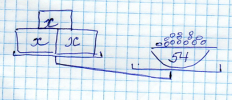 x
x x
54